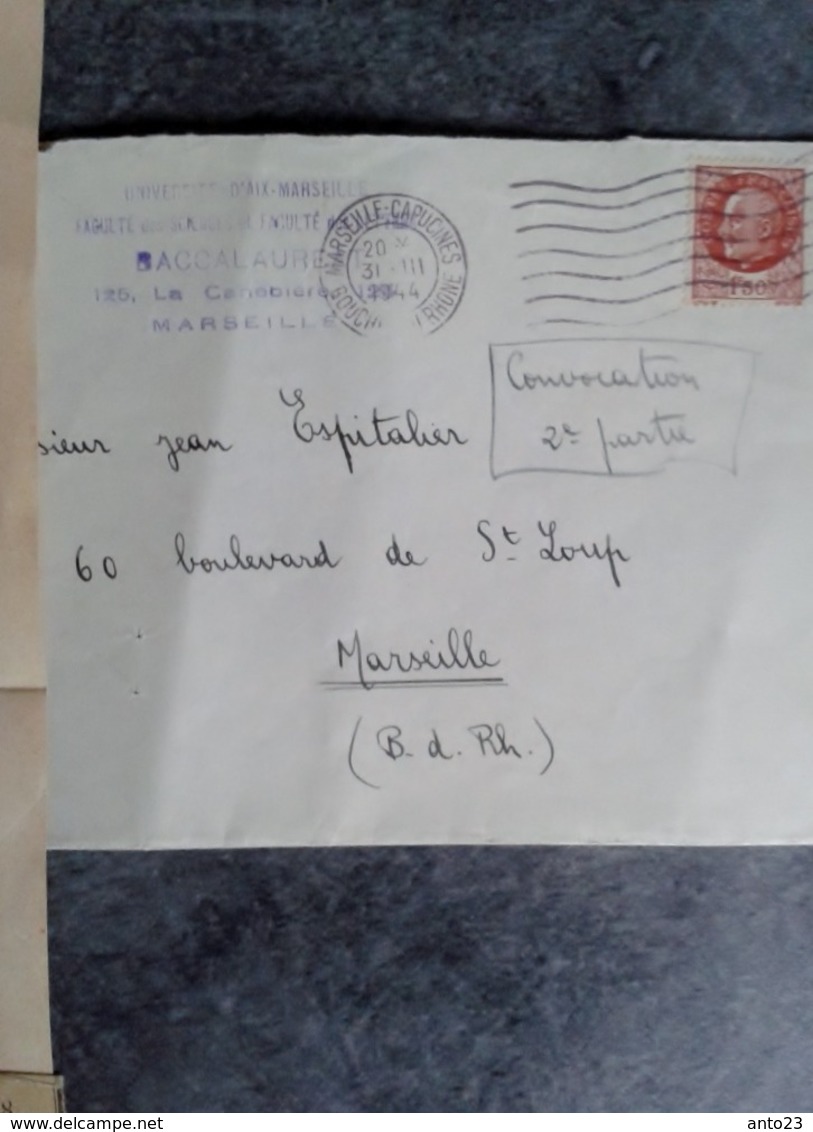 UNIVERSITÉ D'AIX-MARSEILLE
FACULTÉ des SCIENCES et FACULTÉ
BACCALAURÉAT
125, La Canebière, 125
MARSEILLE
MARSEILLE-CAPUCINES
20 H
31 III
1944
BOUCHES DU RHONE
1F50
Convocation
2e partie
sieur Jean Espitalier
60 boulevard de St Loup
Marseille
(B. d. Rh.)
delcampe.net
anto23